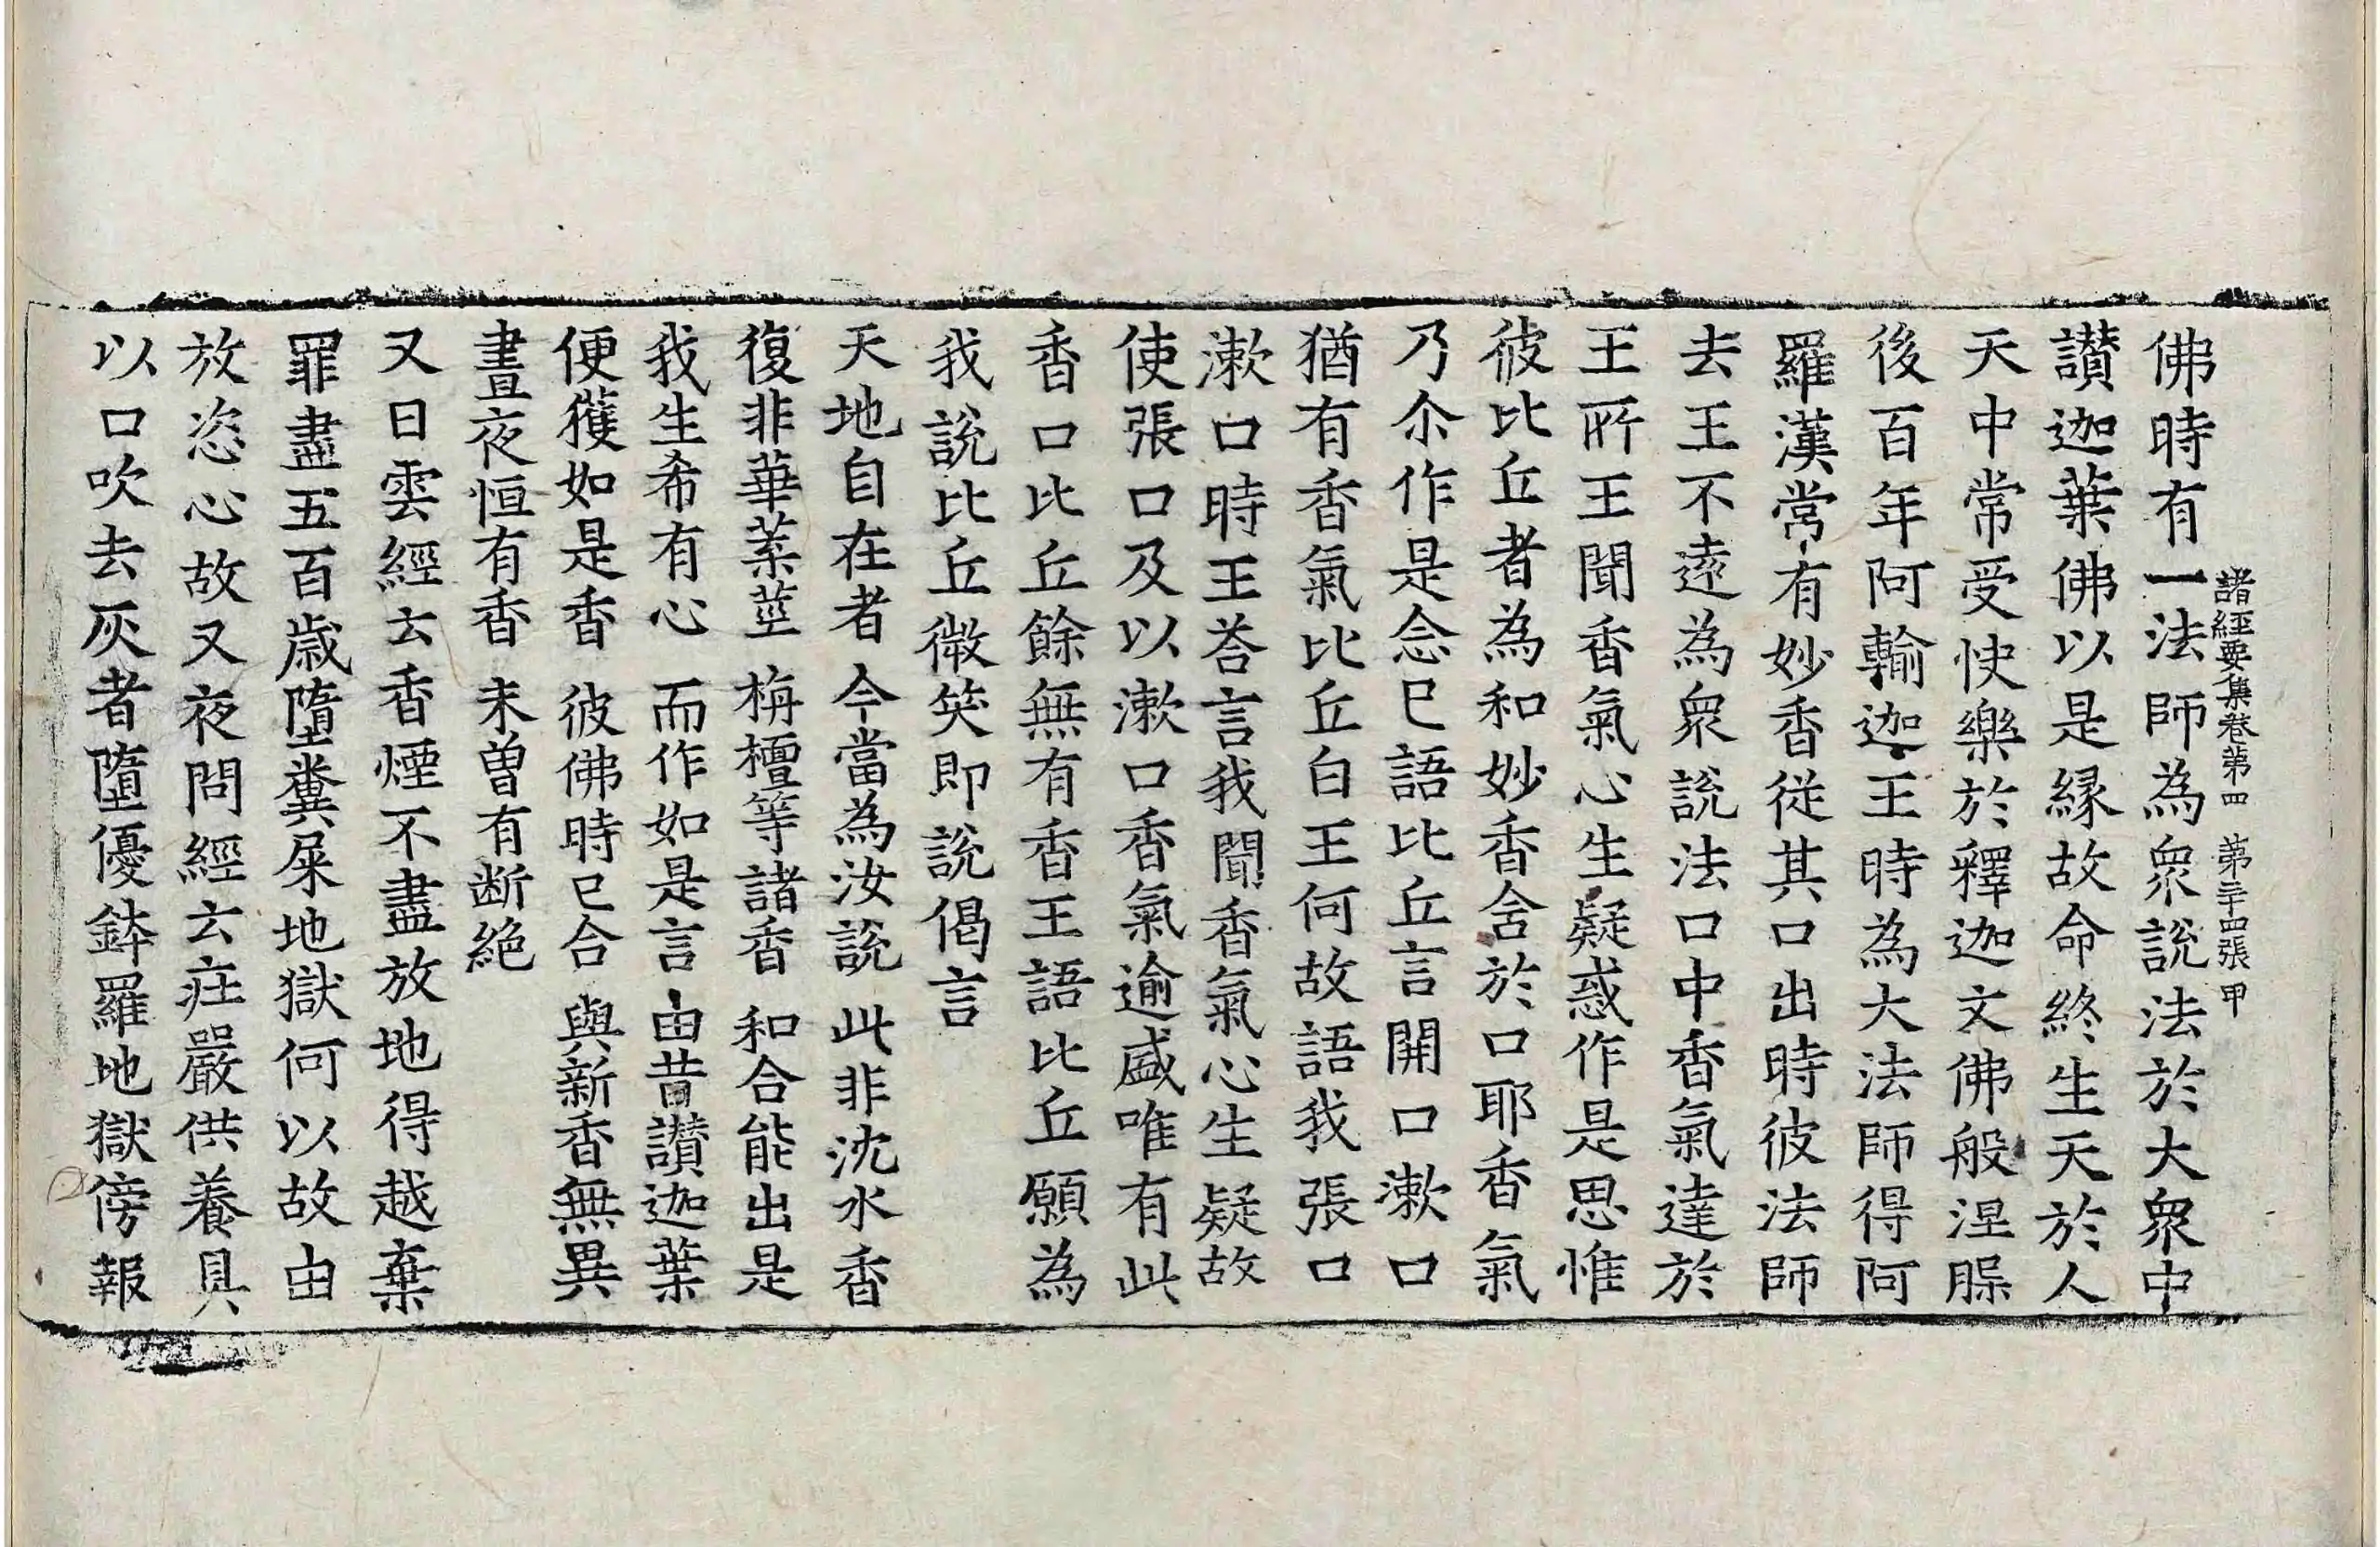 諸經要集卷第四　第三十四張　甲
佛時有一法師為衆說法於大衆中
讃迦葉佛以是縁故命終生天於人
天中常受快樂於釋迦文佛般涅槃
後百年阿輸迦王時為大法師得阿
羅漢常有妙香從其口出時彼法師
去王不遠為衆說法口中香氣達於
王所王聞香氣心生疑惑作是思惟
彼比丘者為和妙香含於口耶香氣
乃尒作是念已語比丘言開口漱口
猶有香氣比丘白王何故語我張口
漱口時王荅言我聞香氣心生疑故
使張口及以漱口香氣逾盛唯有此
香口比丘餘無有香王語比丘願為
我說比丘微笑即說偈言
天地自在者　今當為汝說　此非沈水香
復非華葉莖　栴檀等諸香　和合能出是
我生希有心　而作如是言　由昔讃迦葉
便獲如是香　彼佛時已合　與新香無異
晝夜恒有香　未曽有断絶
又日雲經云香煙不盡放地得越棄
罪盡五百歳墮糞屎地獄何以故由
放恣心故又夜問經云莊嚴供養具
以口吹去灰者墮優鉢羅地獄傍報